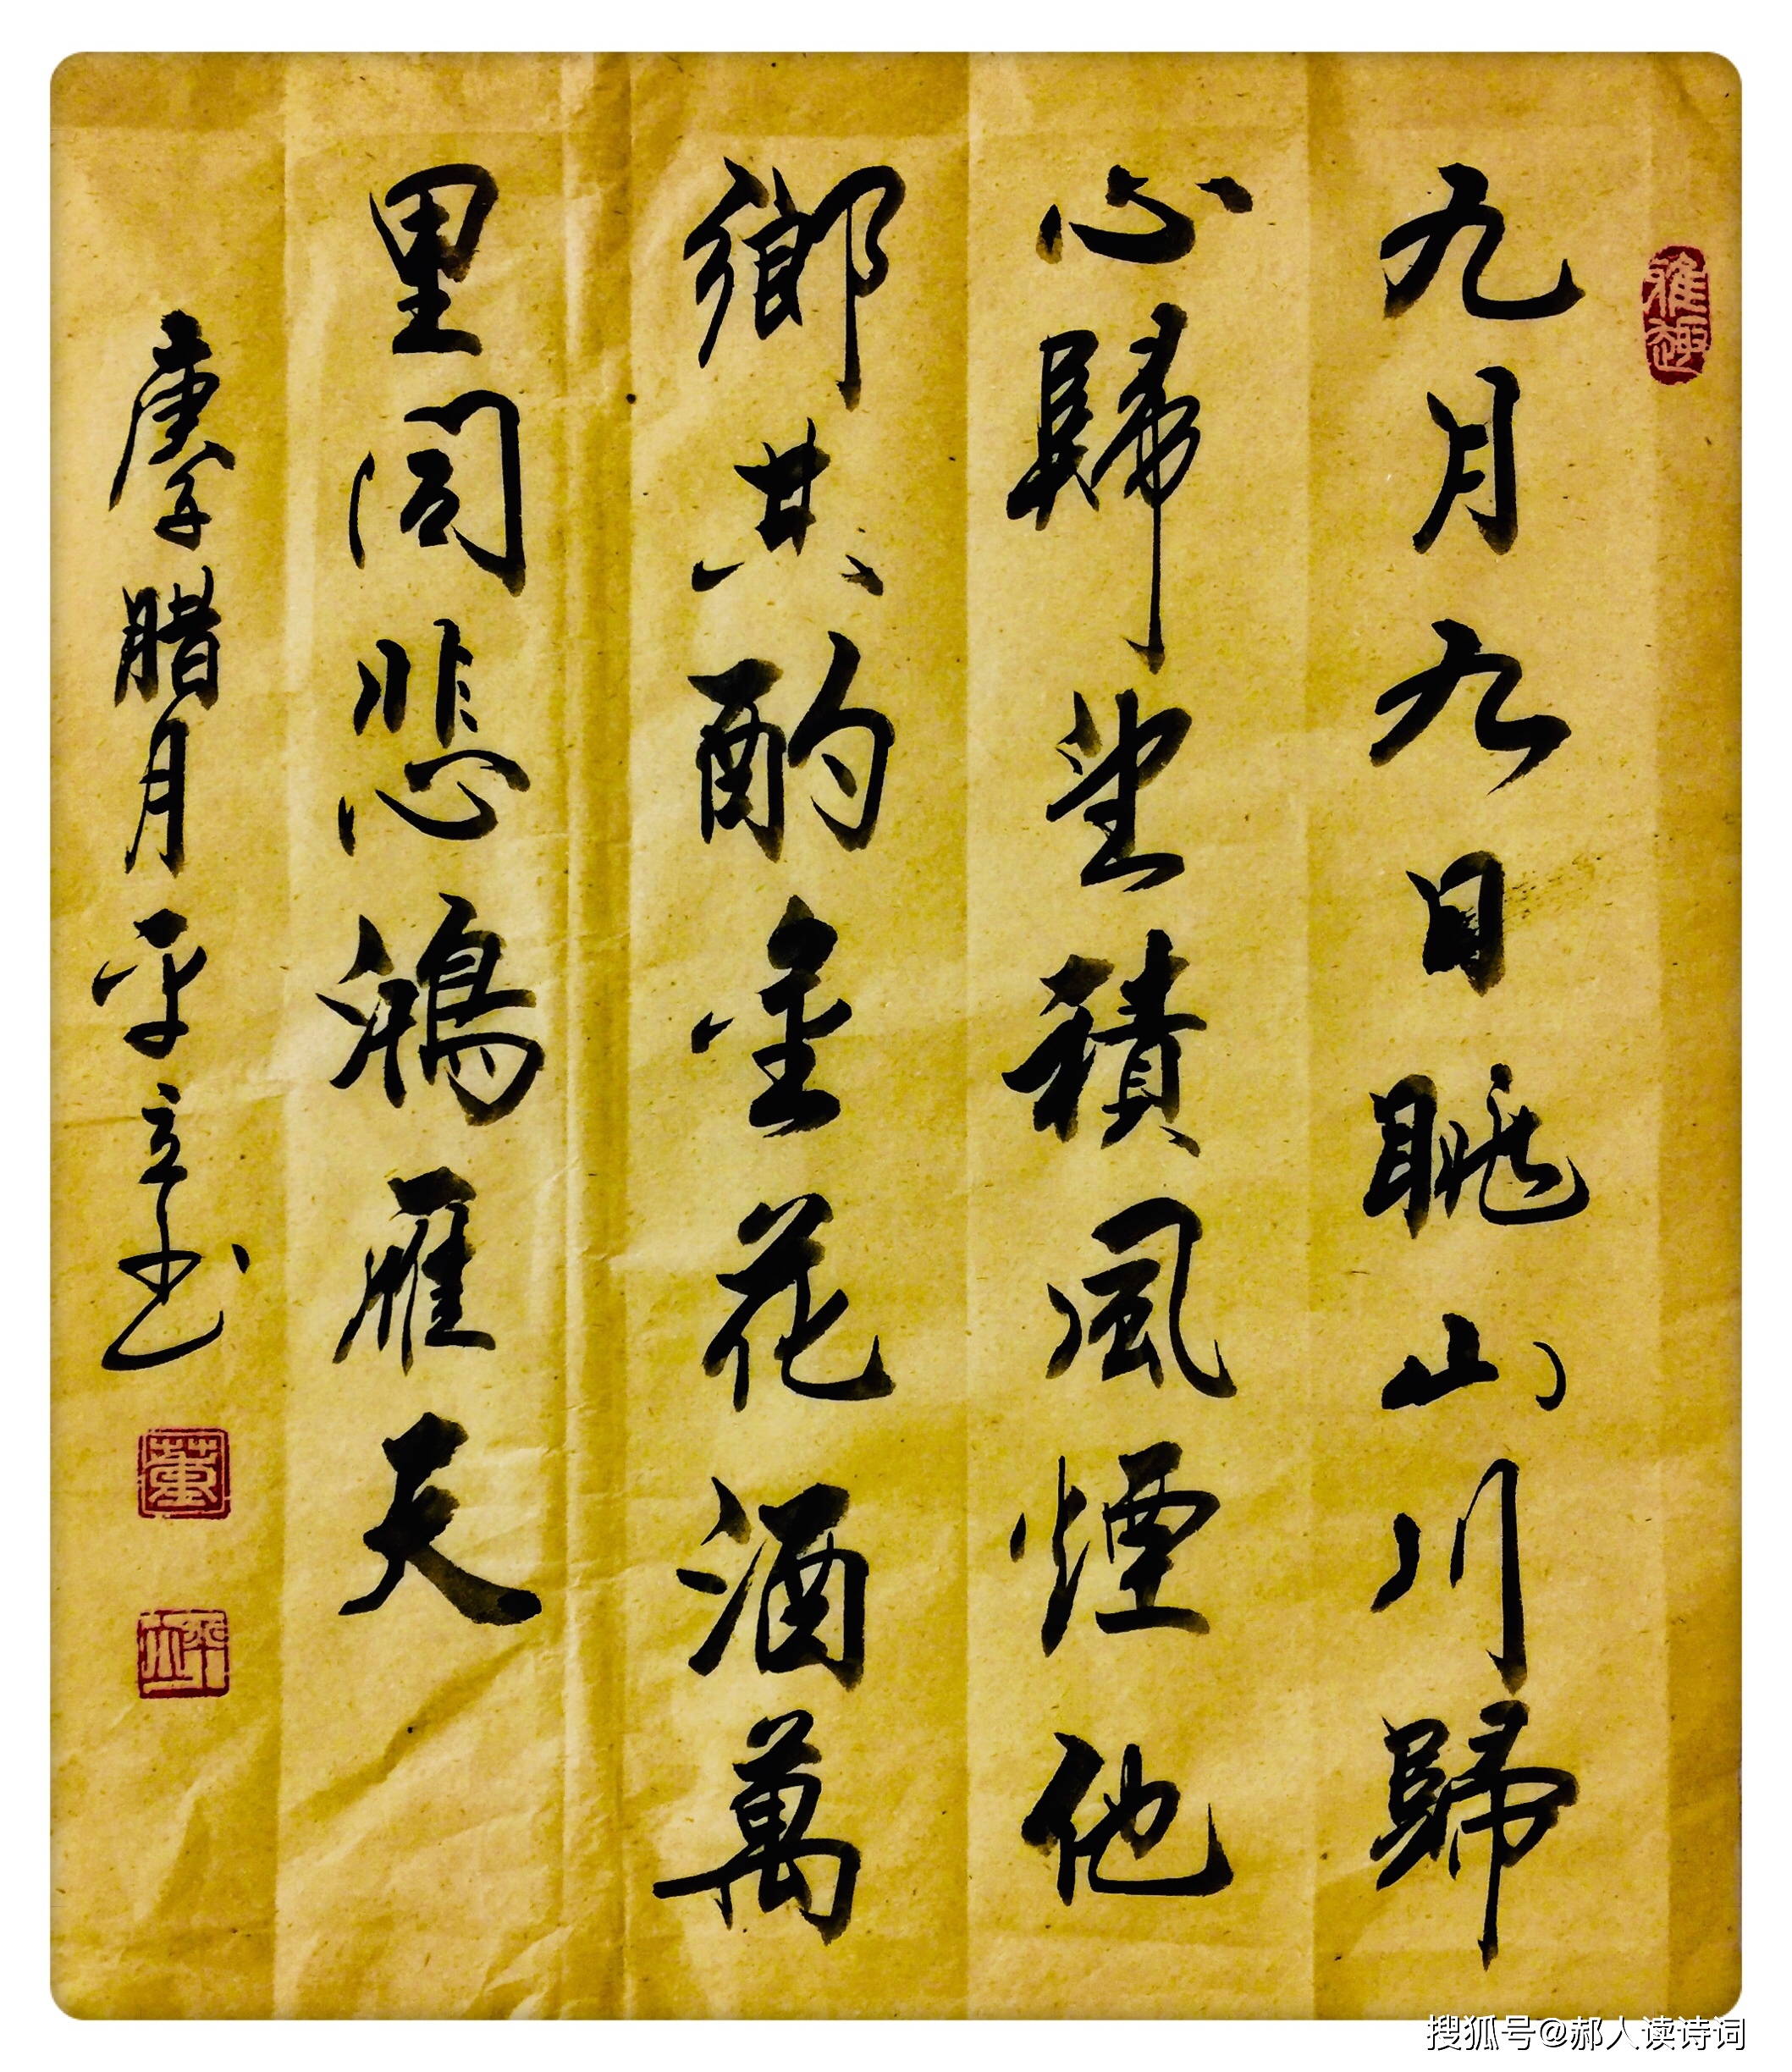 雅趣
九月九日眺山川歸
心歸望積風煙他
鄉共酌金花酒萬
里同悲鴻雁天
庚子腊月平立书
董
搜狐号@郝人读诗词